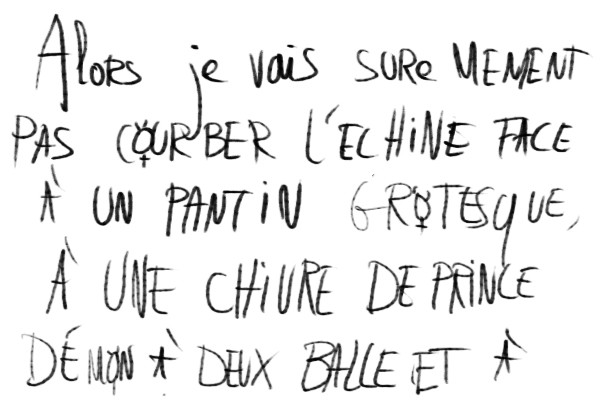 Alors je vais sureMENENT
PAS COURBER L'ECHINE FACE
À UN PANTIN GROTESQUE,
À UNE CHIURE DE PRINCE
DÉMON À DEUX BALLE ET À